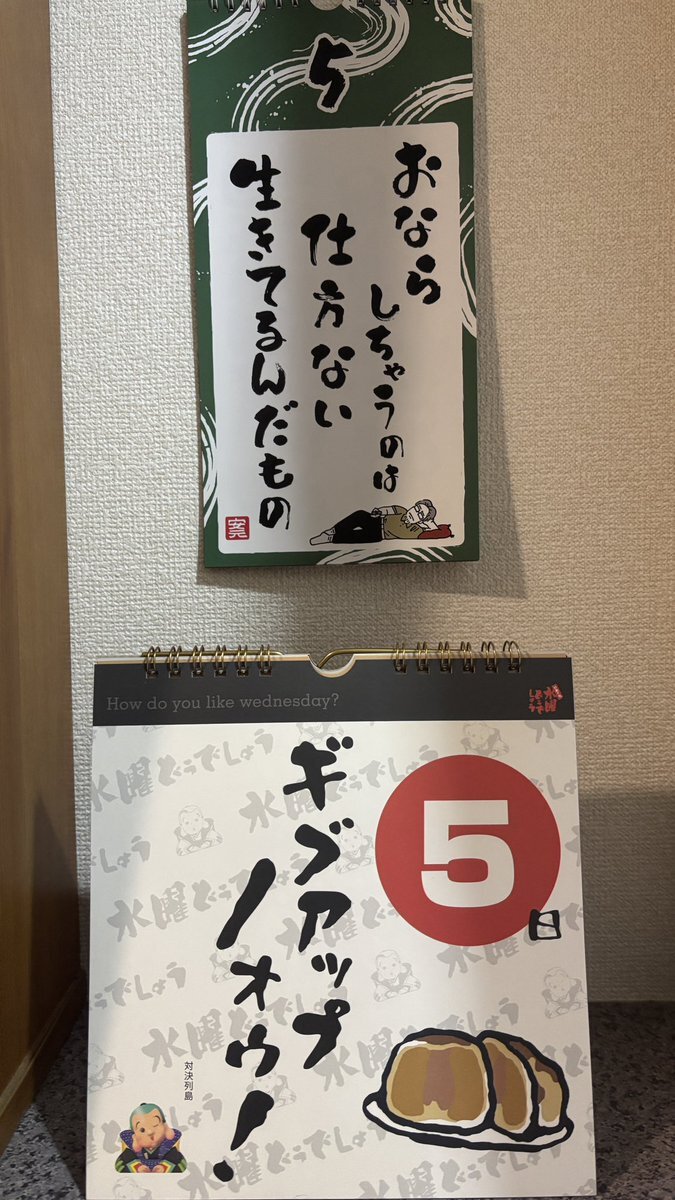 5
おなら
しちゃうのは
仕方ない
生きてるんだもの
How do you like wednesday?
水曜
どうで
しょう
5
日
ギブアップ
ノォウ!
対決列島
水曜どうでしょう
水曜どうでしょう
水曜どうでしょう
水曜どうでしょう